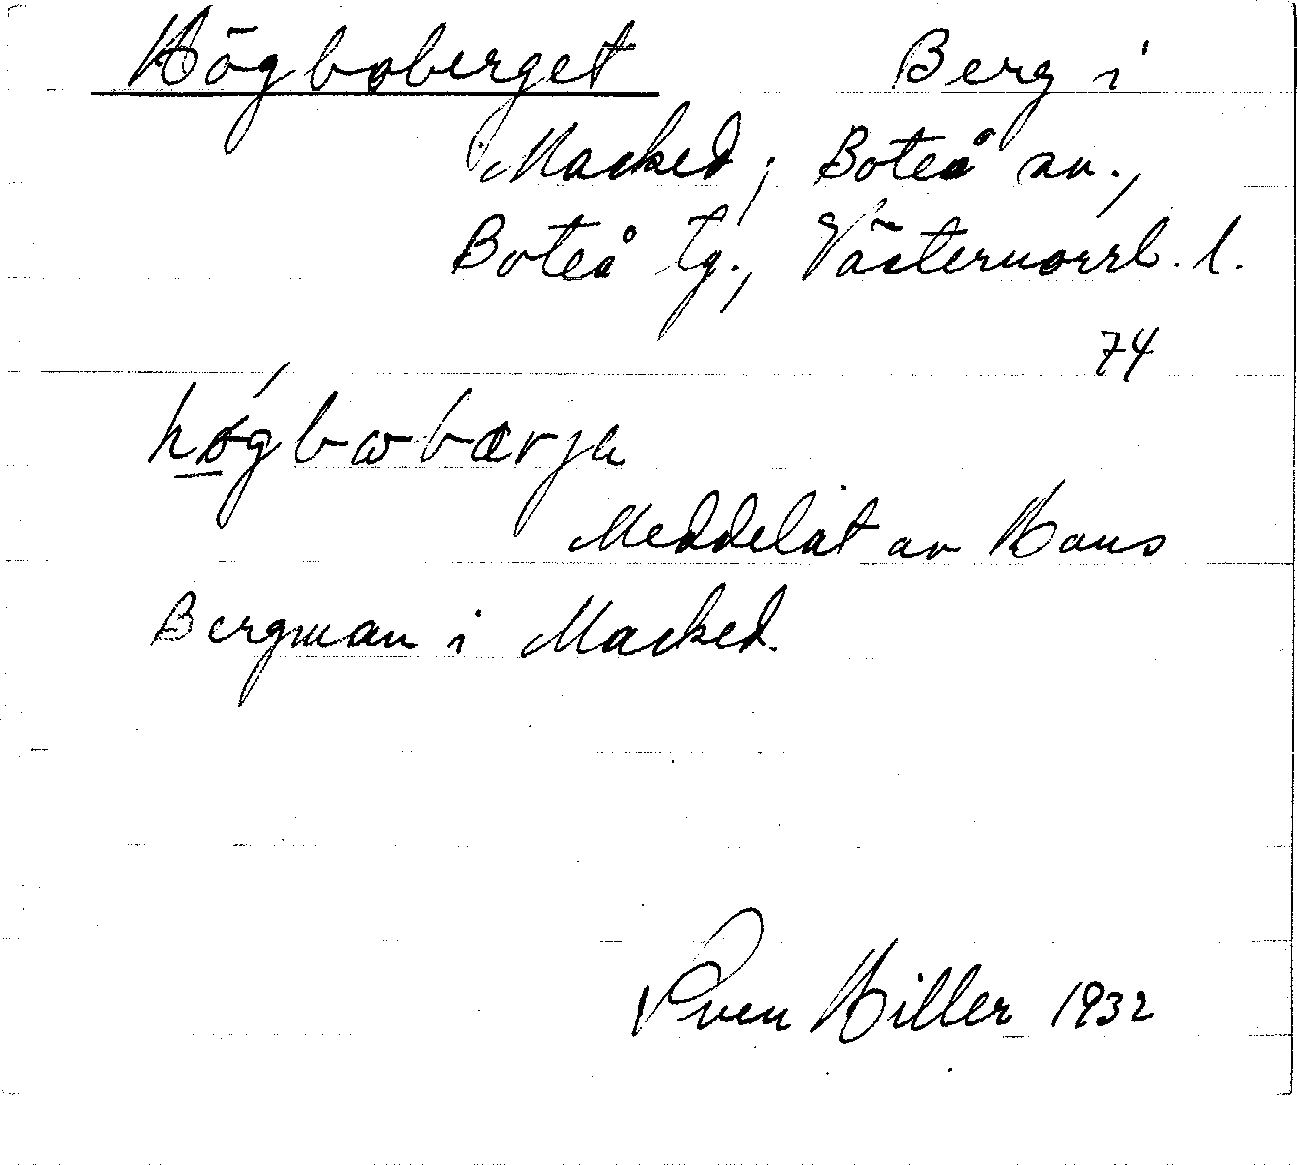 Högboberget Berg i
Macked, Boteå sn.,
Boteå tg., Västernorrl. l.
74
hǿ̲gbωbærja
Meddelat av Hans
Bergman i Macked.
Sven Hiller 1932